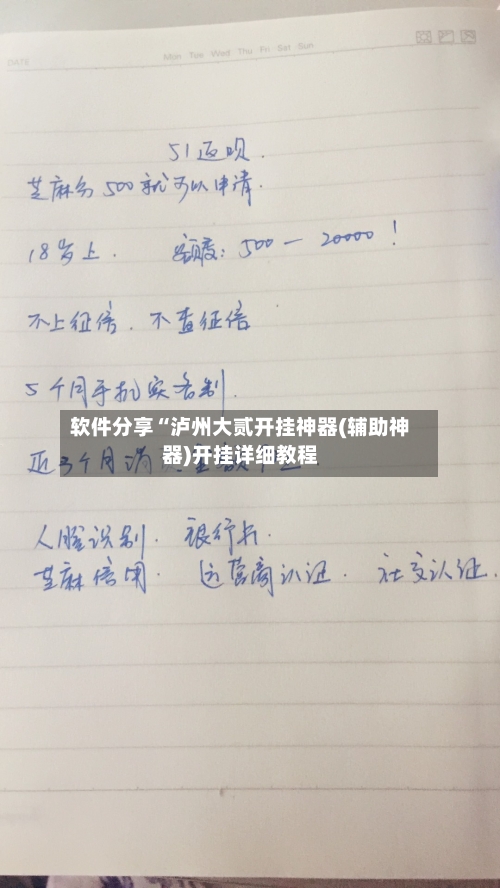 DATE
Mon Tue Wed Thu Fri Sat Sun
51返呗.
芝麻分500就可以申请.
18岁上. 额度: 500一20000!
不上征信. 不查征信
5个月手机实名制.
软件分享“泸州大贰开挂神器(辅助神
器)开挂详细教程
近3个月
人脸识别. 银行卡.
芝麻信用. 运营商认证. 社交认证.